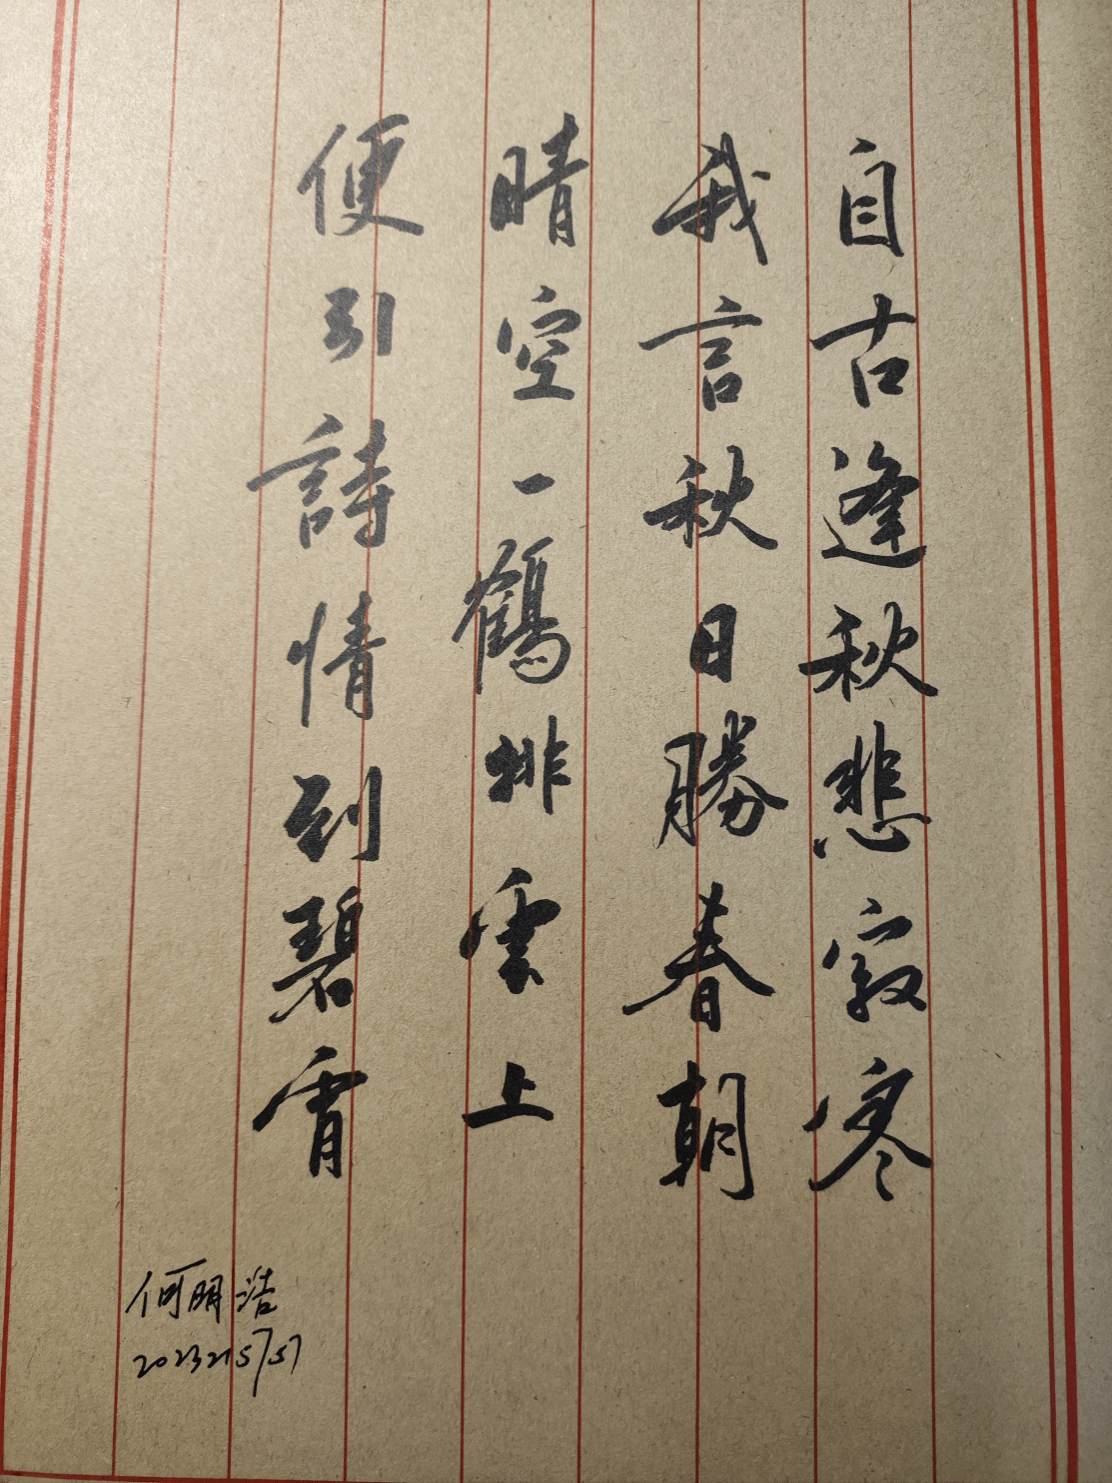 自古逢秋悲寂寥
我言秋日勝春朝
晴空一鶴排雲上
便引詩情到碧霄
何明浩